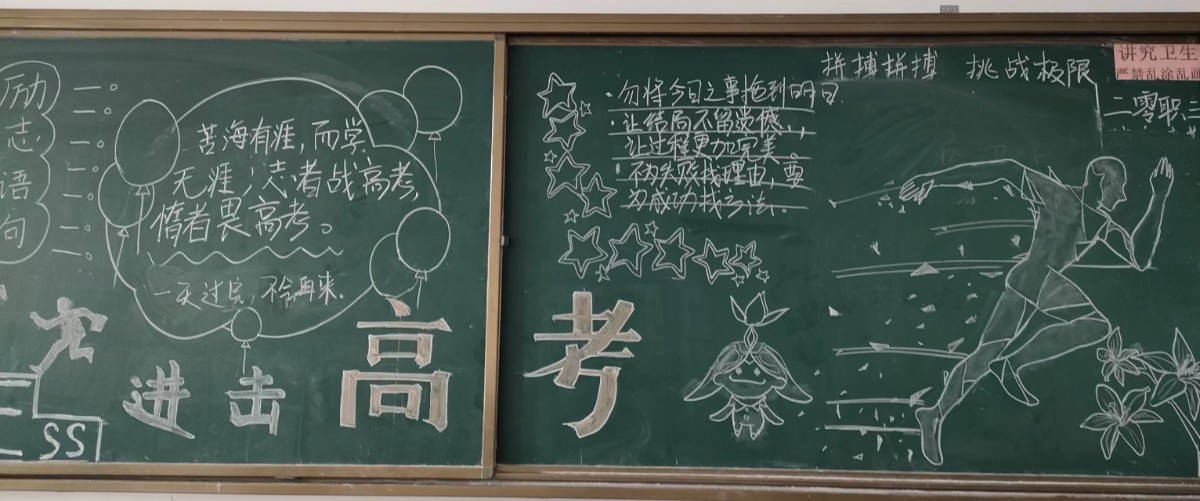 励
志
语
句
苦海有涯，而学
无涯，志者战高考，
惰者畏高考。
一天过完，不会再来.
进击高考
SS
·勿将今日之事拖到明日.
·让结局不留遗憾，
让过程更加完美.
·不为失败找理由，要
为成功找方法.
拼搏拼搏 挑战极限
讲究卫生
严禁乱涂乱画
二零职